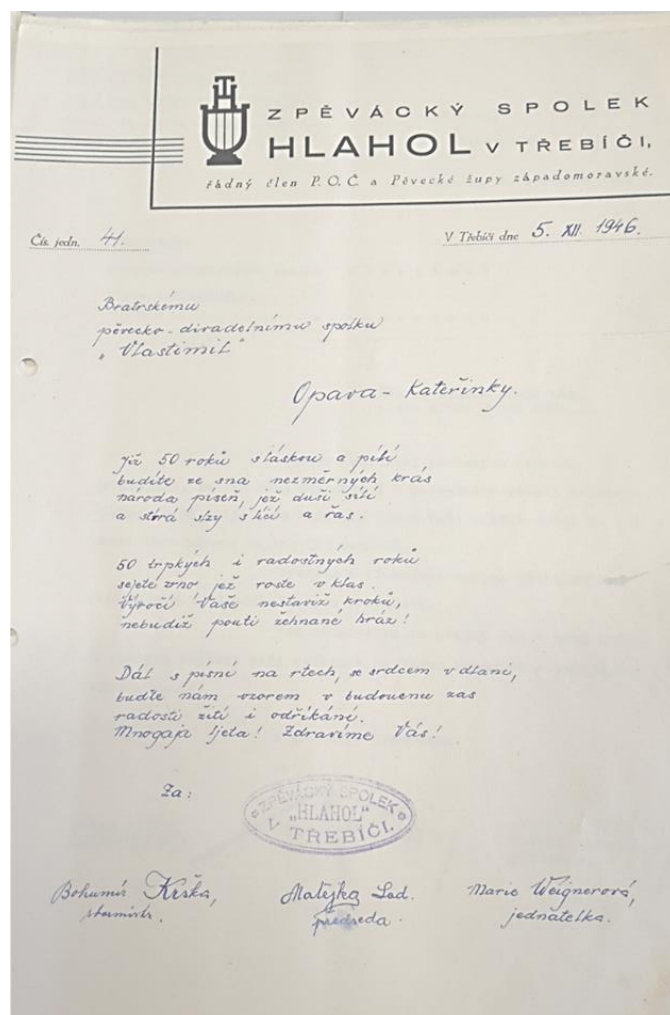 ZPĚVÁCKÝ SPOLEK
HLAHOL V TŘEBÍČI,
řádný člen P.O.Č. a Pěvecké župy západomoravské.
Čís. jedn. 41.
V Třebíči dne 5. XII. 1946.
Bratrskému
pěvecko-divadelnímu spolku
"Vlastimil"
Opava - Kateřinky.
Již 50 roků s láskou a pílí
budíte ze sna nezměrných krás
národa píseň, jež duši sílí
a stírá slzy s lící a řas.
50 trpkých i radostných roků
sejete zrno jež roste v klas.
Výročí Vaše nestaviž kroků,
nebudiž pouti žehnané hráz!
Dál s písní na rtech, se srdcem v dlani,
buďte nám vzorem v budoucnu zas
radosti žití i odříkání.
Mnogaja ljeta! Zdravíme Vás!
Za:
ZPĚVÁCKÝ SPOLEK
"HLAHOL"
V TŘEBÍČI.
Bohumír Krška, Matejka Lad. Marie Weignerová,
sbormistr. předseda. jednatelka.